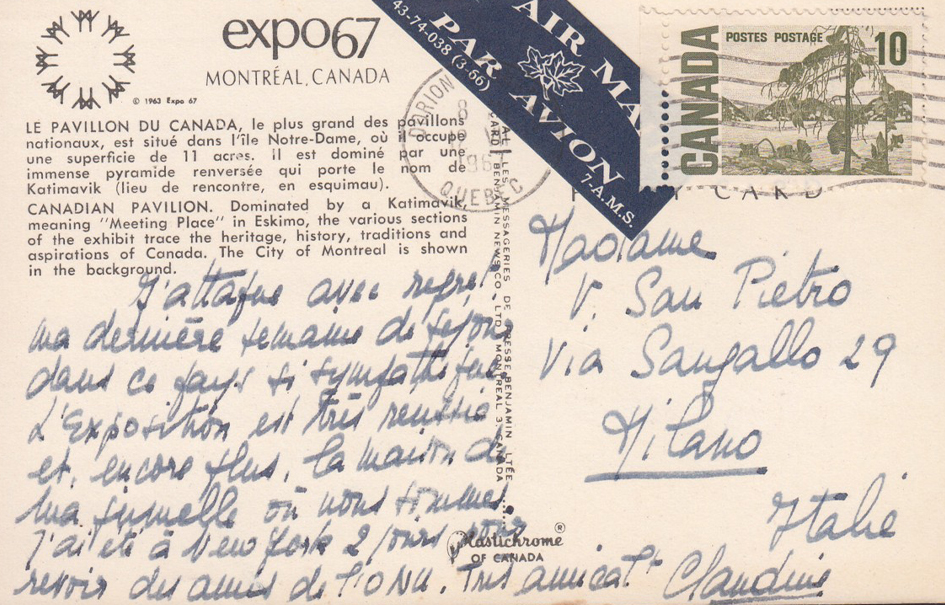 expo67
MONTRÉAL, CANADA
© 1963 Expo 67
LE PAVILLON DU CANADA, le plus grand des pavillons
nationaux, est situé dans l'île Notre-Dame, où il occupe
une superficie de 11 acres. il est dominé par une
immense pyramide renversée qui porte le nom de
Katimavik (lieu de rencontre, en esquimau).
CANADIAN PAVILION. Dominated by a Katimavik,
meaning "Meeting Place" in Eskimo, the various sections
of the exhibit trace the heritage, history, traditions and
aspirations of Canada. The City of Montreal is shown
in the background.
J'attaque avec regret
ma dernière semaine de séjour
dans ce pays si sympathique
L'Exposition est très réussie
et, encore plus, la maison de
ma jumelle où nous sommes.
J'ai été à New York 2 jours pour
revoir des amis de l'ONU. Très amicalt
Claudine
43-74-038 (3-66)
AIR MA
PAR AVION
7-A.M.S.
DORION
QUEBEC
LES MESSAGERIES DE PRESSE BENJAMIN LTÉE
BENJAMIN NEWS CO. LTD. MONTREAL 3, CANADA
Plastichrome ®
OF CANADA
POSTES POSTAGE 10
CANADA
CARD
Madame
V. San Pietro
Via Sangallo 29
Milano
Italie